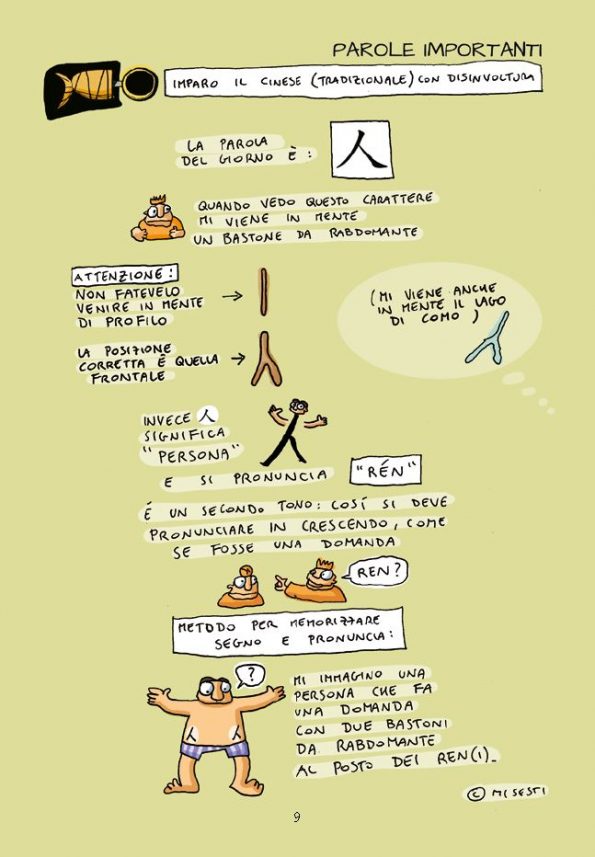 PAROLE IMPORTANTI
IMPARO IL CINESE (TRADIZIONALE) CON DISINVOLTURA
LA PAROLA
DEL GIORNO È:
人
QUANDO VEDO QUESTO CARATTERE
MI VIENE IN MENTE
UN BASTONE DA RABDOMANTE
ATTENZIONE:
NON FATEVELO
VENIRE IN MENTE
DI PROFILO
(MI VIENE ANCHE
IN MENTE IL LAGO
DI COMO)
LA POSIZIONE
CORRETTA È QUELLA
FRONTALE
INVECE 人
SIGNIFICA
"PERSONA"
E SI PRONUNCIA "RÉN"
É UN SECONDO TONO: COSÍ SI DEVE
PRONUNCIARE IN CRESCENDO, COME
SE FOSSE UNA DOMANDA
REN?
METODO PER MEMORIZZARE
SEGNO E PRONUNCIA:
?
MI IMMAGINO UNA
PERSONA CHE FA
UNA DOMANDA
CON DUE BASTONI
DA RABDOMANTE
AL POSTO DEI REN(I)_
© MISESTI
9